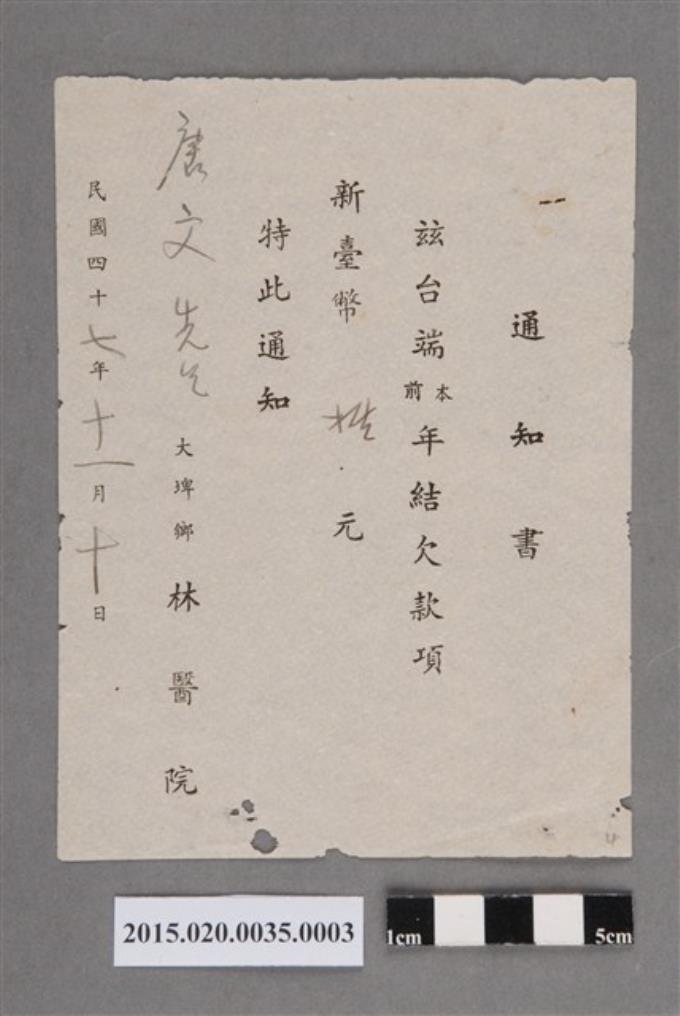 通知書
茲台端本前年結欠款項
新臺幣 元
特此通知
唐文先生
大埤鄉林醫院
民國四十七年十一月十日
2015.020.0035.0003
1cm 5cm